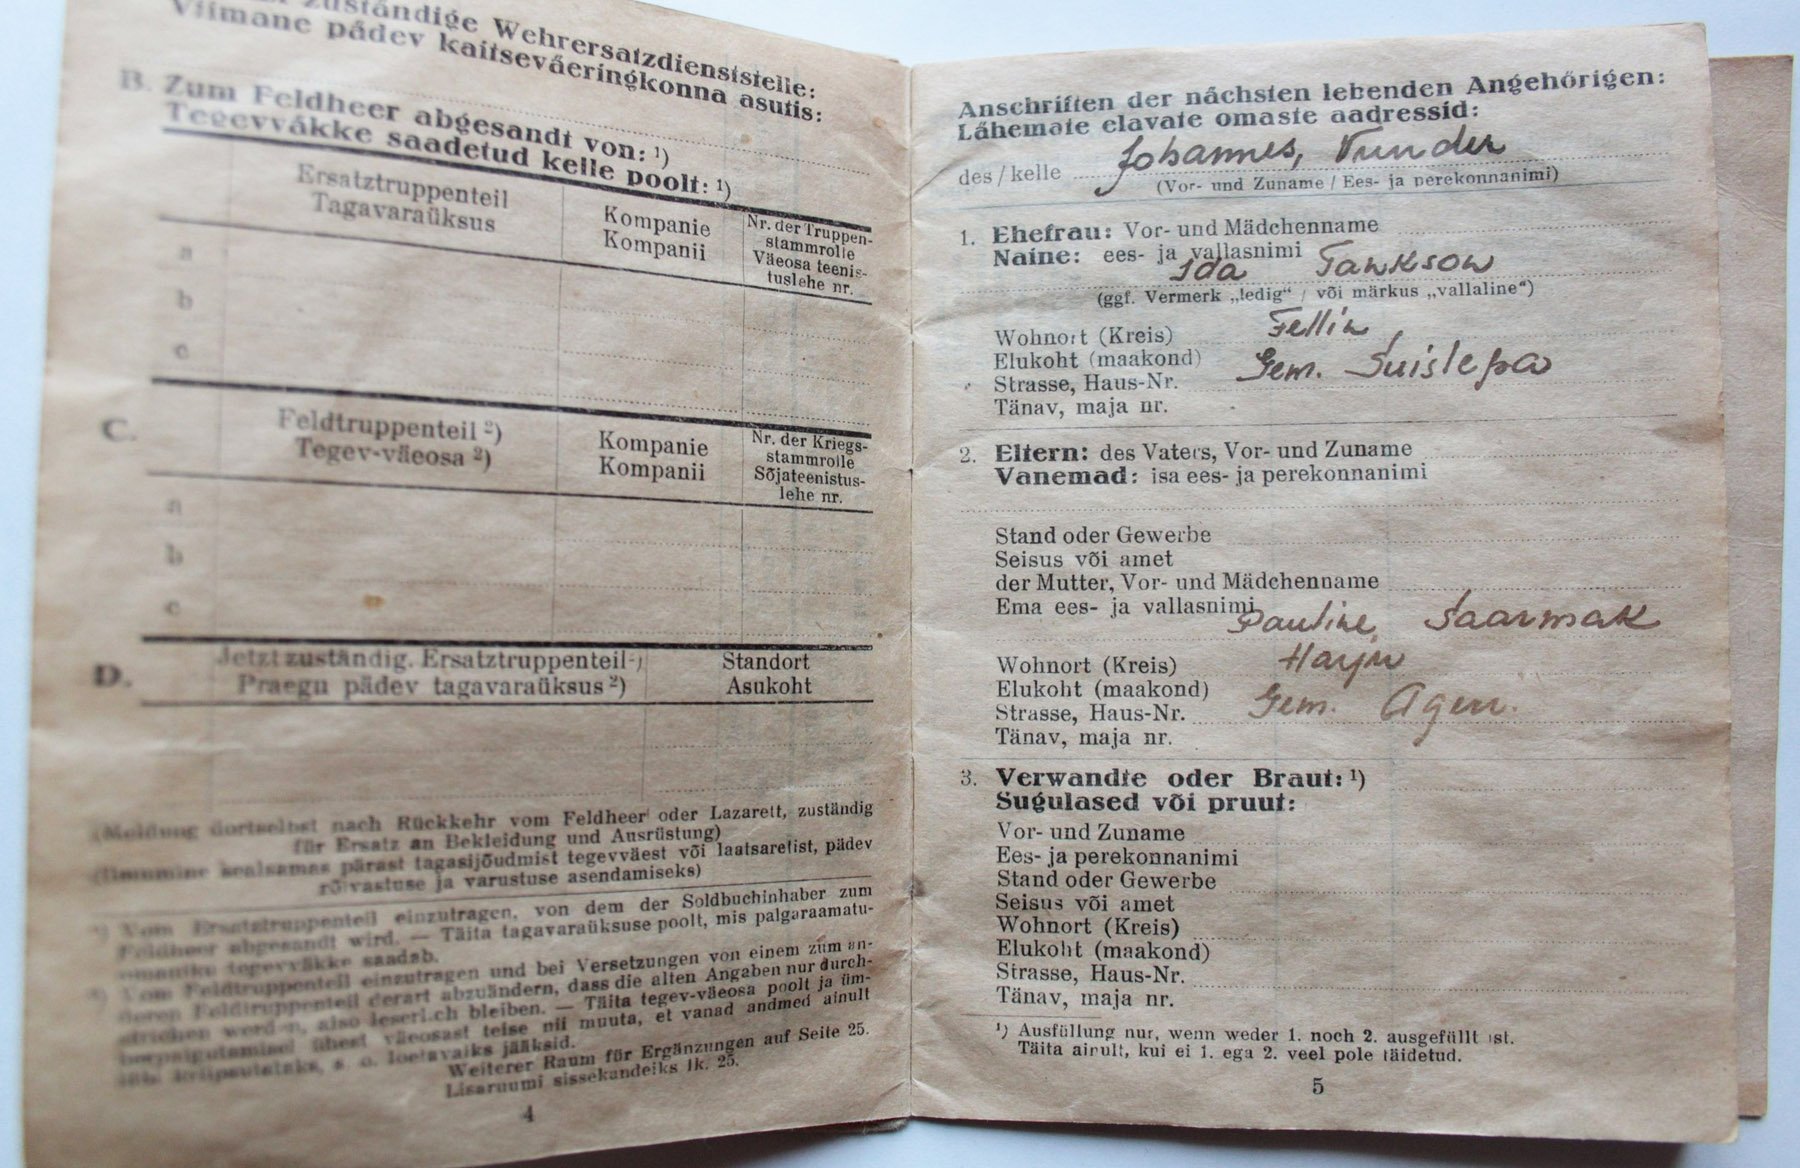 zuständige Wehrersatzdienststelle:
Viimane pädev kaitseväeringkonna asutis:
B. Zum Feldheer abgesandt von: ¹)
Tegevväkke saadetud kelle poolt: ¹)
Ersatztruppenteil
Tagavaraüksus
Kompanie
Kompanii
Nr. der Truppen-
stammrolle
Väeosa teenis-
tuslehe nr.
a
b
c
C.
Feldtruppenteil ²)
Tegev-väeosa ²)
Kompanie
Kompanii
Nr. der Kriegs-
stammrolle
Sõjateenistus-
lehe nr.
a
b
c
D.
Jetzt zuständig. Ersatztruppenteil ²)
Praegu pädev tagavaraüksus ²)
Standort
Asukoht
(Meldung dortselbst nach Rückkehr vom Feldheer oder Lazarett, zuständig
für Ersatz an Bekleidung und Ausrüstung)
(Ilmumine sealsamas pärast tagasijõudmist tegevväest või laatsaretist, pädev
rõivastuse ja varustuse asendamiseks)
¹) Vom Ersatztruppenteil einzutragen, von dem der Soldbuchinhaber zum
Feldheer abgesandt wird. — Täita tagavaraüksuse poolt, mis palgaraamatu-
omaniku tegevväkke saadab.
²) Vom Feldtruppenteil einzutragen und bei Versetzungen von einem zum an-
deren Feldtruppenteil derart abzuändern, dass die alten Angaben nur durch-
strichen werden, also leserlich bleiben. — Täita tegev-väeosa poolt ja üm-
berpaigutamisel ühest väeosast teise nii muuta, et vanad andmed ainult
läbi kriipsutataks, s. o. loetavaiks jääksid.
Weiterer Raum für Ergänzungen auf Seite 25.
Lisaruumi sissekandeiks lk. 25.
4
Anschriften der nächsten lebenden Angehörigen:
Lähemate elavate omaste aadressid:
des / kelle Johannes, Tunder
(Vor- und Zuname / Ees- ja perekonnanimi)
1. Ehefrau: Vor- und Mädchenname
Naine: ees- ja vallasnimi
Ida Tankson
(ggf. Vermerk „ledig“ / või märkus „vallaline“)
Wohnort (Kreis) Fellin,
Elukoht (maakond)
Strasse, Haus-Nr. Gem. Suislepa
Tänav, maja nr.
2. Eltern: des Vaters, Vor- und Zuname
Vanemad: isa ees- ja perekonnanimi
Stand oder Gewerbe
Seisus või amet
der Mutter, Vor- und Mädchenname
Ema ees- ja vallasnimi
Pauline, Saarmak
Wohnort (Kreis)
Elukoht (maakond)
Strasse, Haus-Nr. Gem.
Tänav, maja nr.
3. Verwandte oder Braut: ¹)
Sugulased või pruut:
Vor- und Zuname
Ees- ja perekonnanimi
Stand oder Gewerbe
Seisus või amet
Wohnort (Kreis)
Elukoht (maakond)
Strasse, Haus-Nr.
Tänav, maja nr.
¹) Ausfüllung nur, wenn weder 1. noch 2. ausgefüllt ist.
Täita ainult, kui ei 1. ega 2. veel pole täidetud.
5